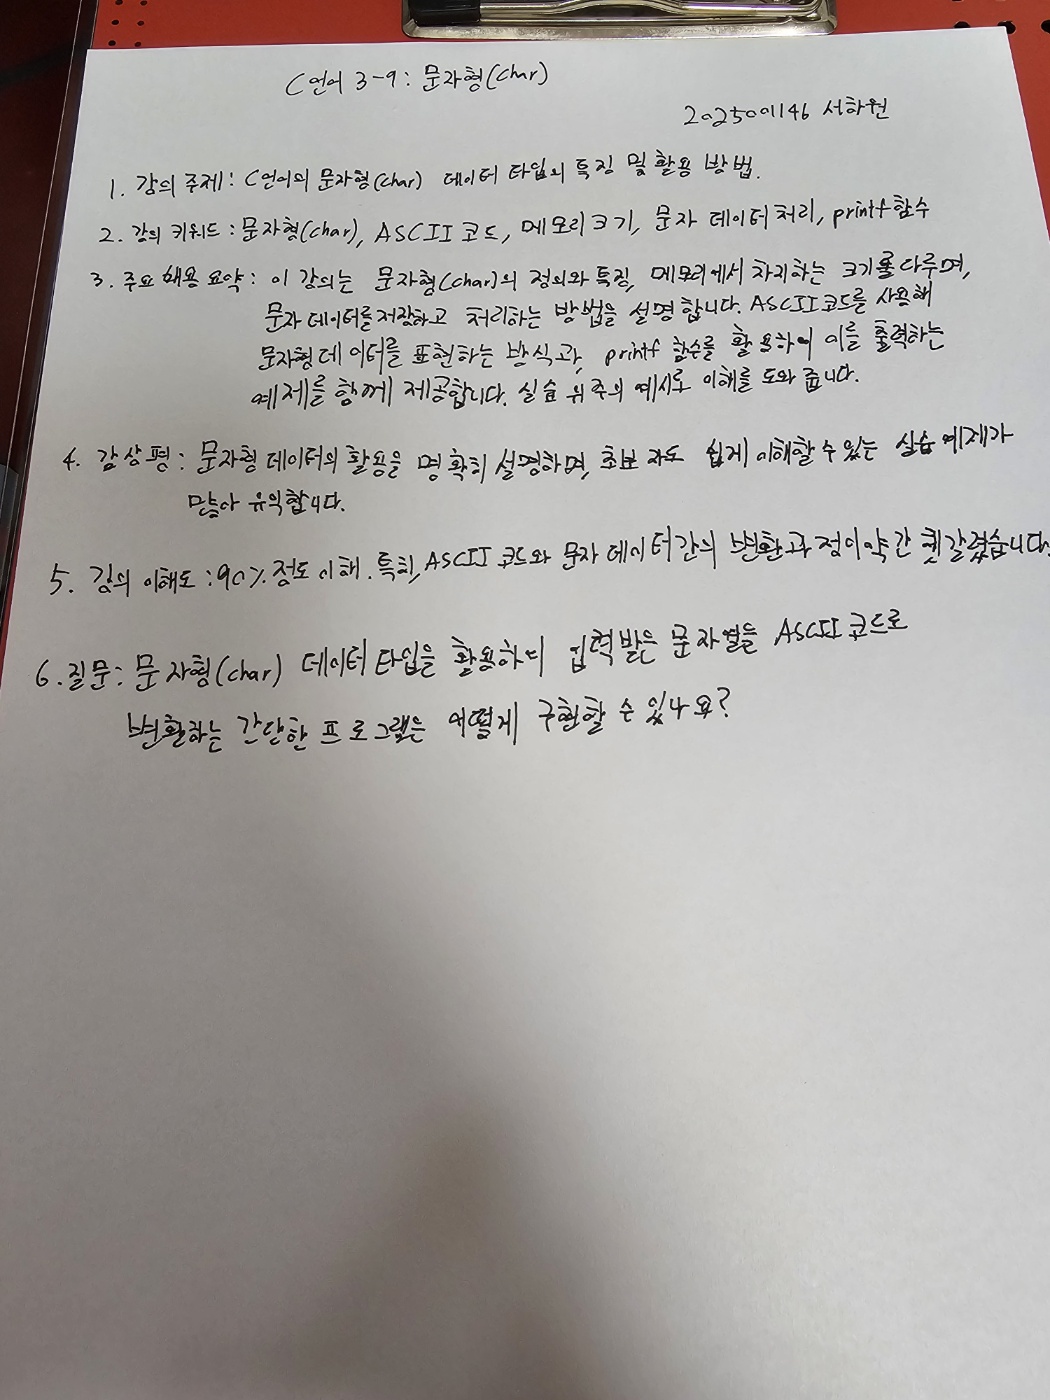 C언어 3-9: 문자형(char)
2025001146 서하원
1. 강의 주제: C언어의 문자형(char) 데이터 타입의 특징 및 활용 방법.
2. 강의 키워드: 문자형(char), ASCII 코드, 메모리 크기, 문자 데이터 처리, printf 함수
3. 주요 내용 요약: 이 강의는 문자형(char)의 정의와 특징, 메모리에서 차지하는 크기를 다루며,
문자 데이터를 저장하고 처리하는 방법을 설명합니다. ASCII 코드를 사용해
문자형 데이터를 표현하는 방식과, printf 함수를 활용하여 이를 출력하는
예제를 함께 제공합니다. 실습 위주의 예시로 이해를 도와 줍니다.
4. 감상평: 문자형 데이터의 활용을 명확히 설명하며, 초보자도 쉽게 이해할 수 있는 실습 예제가
많아 유익합니다.
5. 강의 이해도: 90% 정도 이해. 특히, ASCII 코드와 문자 데이터 간의 변환과정이 약간 헷갈렸습니다.
6. 질문: 문자형(char) 데이터 타입을 활용하여 입력받은 문자열을 ASCII 코드로
변환하는 간단한 프로그램은 어떻게 구현할 수 있나요?